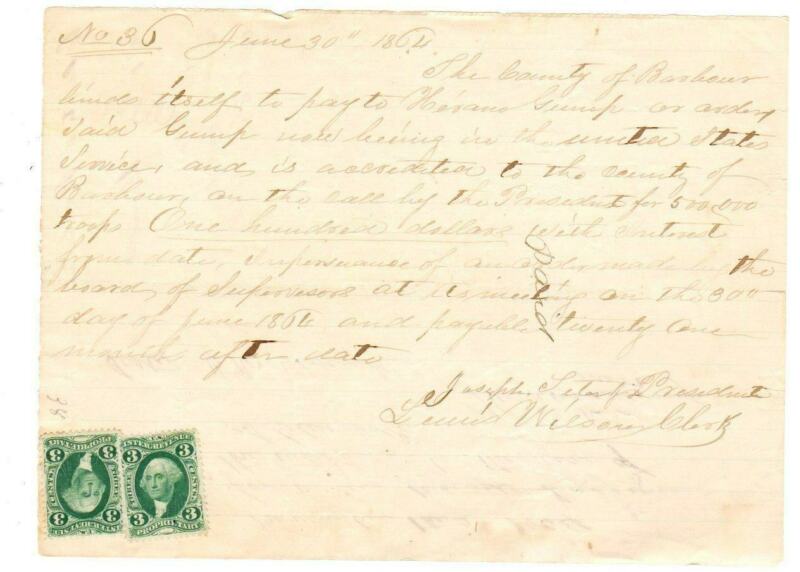 No 36 June 30" 1864
The County of Barbour
binds itself to pay to Hiram Gump or order,
said Gump now being in the united States
Service, and is accredited to the county of
Barbour, on the call by the President for 500,000
troops One hundred dollars with interest
from date, In persuance of an order made by the
board of Supervisors at its meeting on the 30"
day of June 1864 and payable twenty One
months after date
paid
Joseph President
Lewis Wilson Clerk
38
INTER. REVENUE
3 3
THREE CENTS
PROPRIETARY
INTER. REVENUE
3 3
THREE CENTS
PROPRIETARY